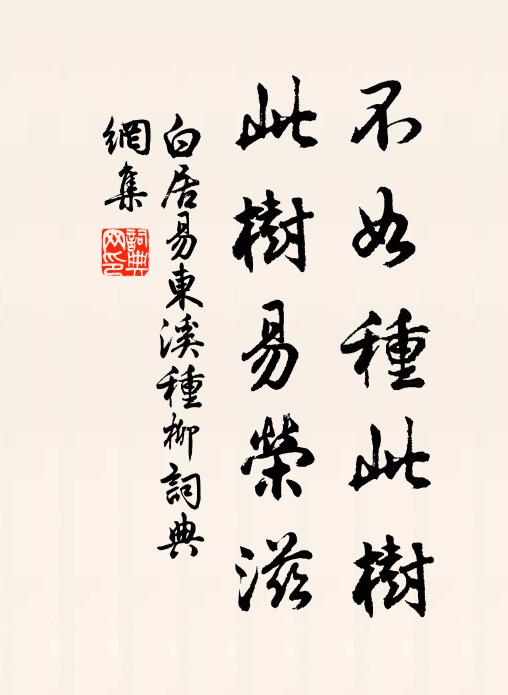 不如種此樹
此樹易榮滋
白居易東溪種柳詞典
網集
詞典
网印